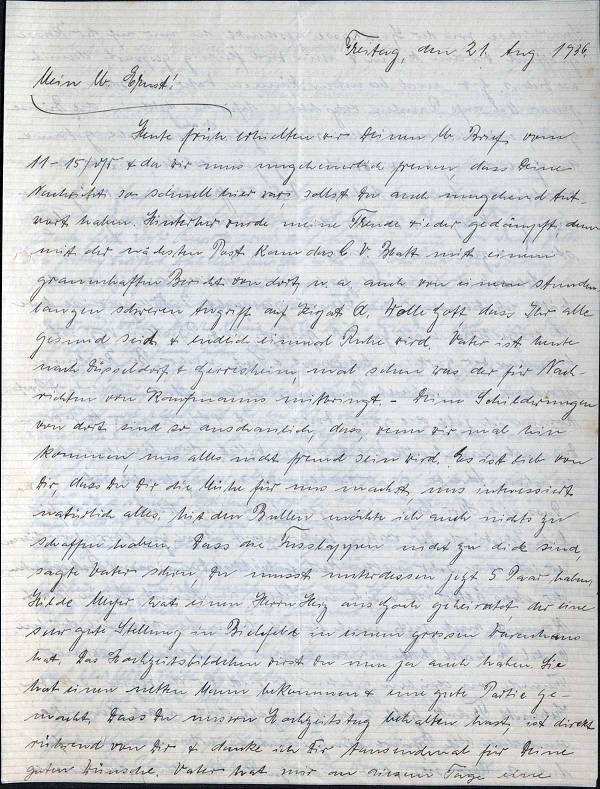 Freitag, den 21. Aug 1936.
Mein lb. Ernst!
Heute früh erhielten wir Deinen lb. Brief vom
11-15/ & da wir uns ungeheuerlich freuen dass Deine
Nachricht so schnell hier war, sollst Du auch umgehend Ant-
wort haben. Hinterher wurde meine Freude wieder gedämpft denn
mit der nächsten Post kam das C. V. Blatt mit einem
grauenhaften Bericht von dort u. a. auch von einem stunden
langen schweren Angriff auf A. Wolle Gott dass Ihr alle
gesund seid & endlich einmal Ruhe wird. Vater ist heute
nach Düsseldorf & Gerresheim, mal sehen was der für Nach-
richten von Kaufmanns mitbringt. - Deine Schilderungen
von dort sind so anschaulich, dass, wenn wir mal hin
kommen, uns alles nicht fremd sein wird. Es ist lieb von
Dir, dass Du Dir die Mühe für uns machst, uns interessiert
natürlich alles. Mit den Bullen möchte ich auch nichts zu
schaffen haben. Dass die Fusslappen nicht zu dick sind,
sagte Vater schon, Du musst unterdessen jetzt 5 Paar haben.
Hilde Meyer hat einen Herrn Herz aus geheiratet, der eine
sehr gute Stellung in Bielefeld in einem grossen Warenhaus
hat, das Hochzeitsbildchen wirst Du nun ja auch haben. Sie
hat einen netten Mann bekommen & eine gute Partie ge-
macht. Dass Du unsern Hochzeitstag behalten hast, ist direkt
rührend von Dir & danke ich Dir tausendmal für Deine
guten Wünsche. Vater hat mir an diesem Tage eine